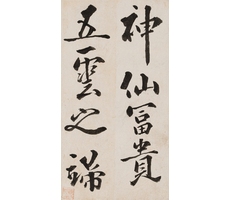 神仙富貴
五雲之端